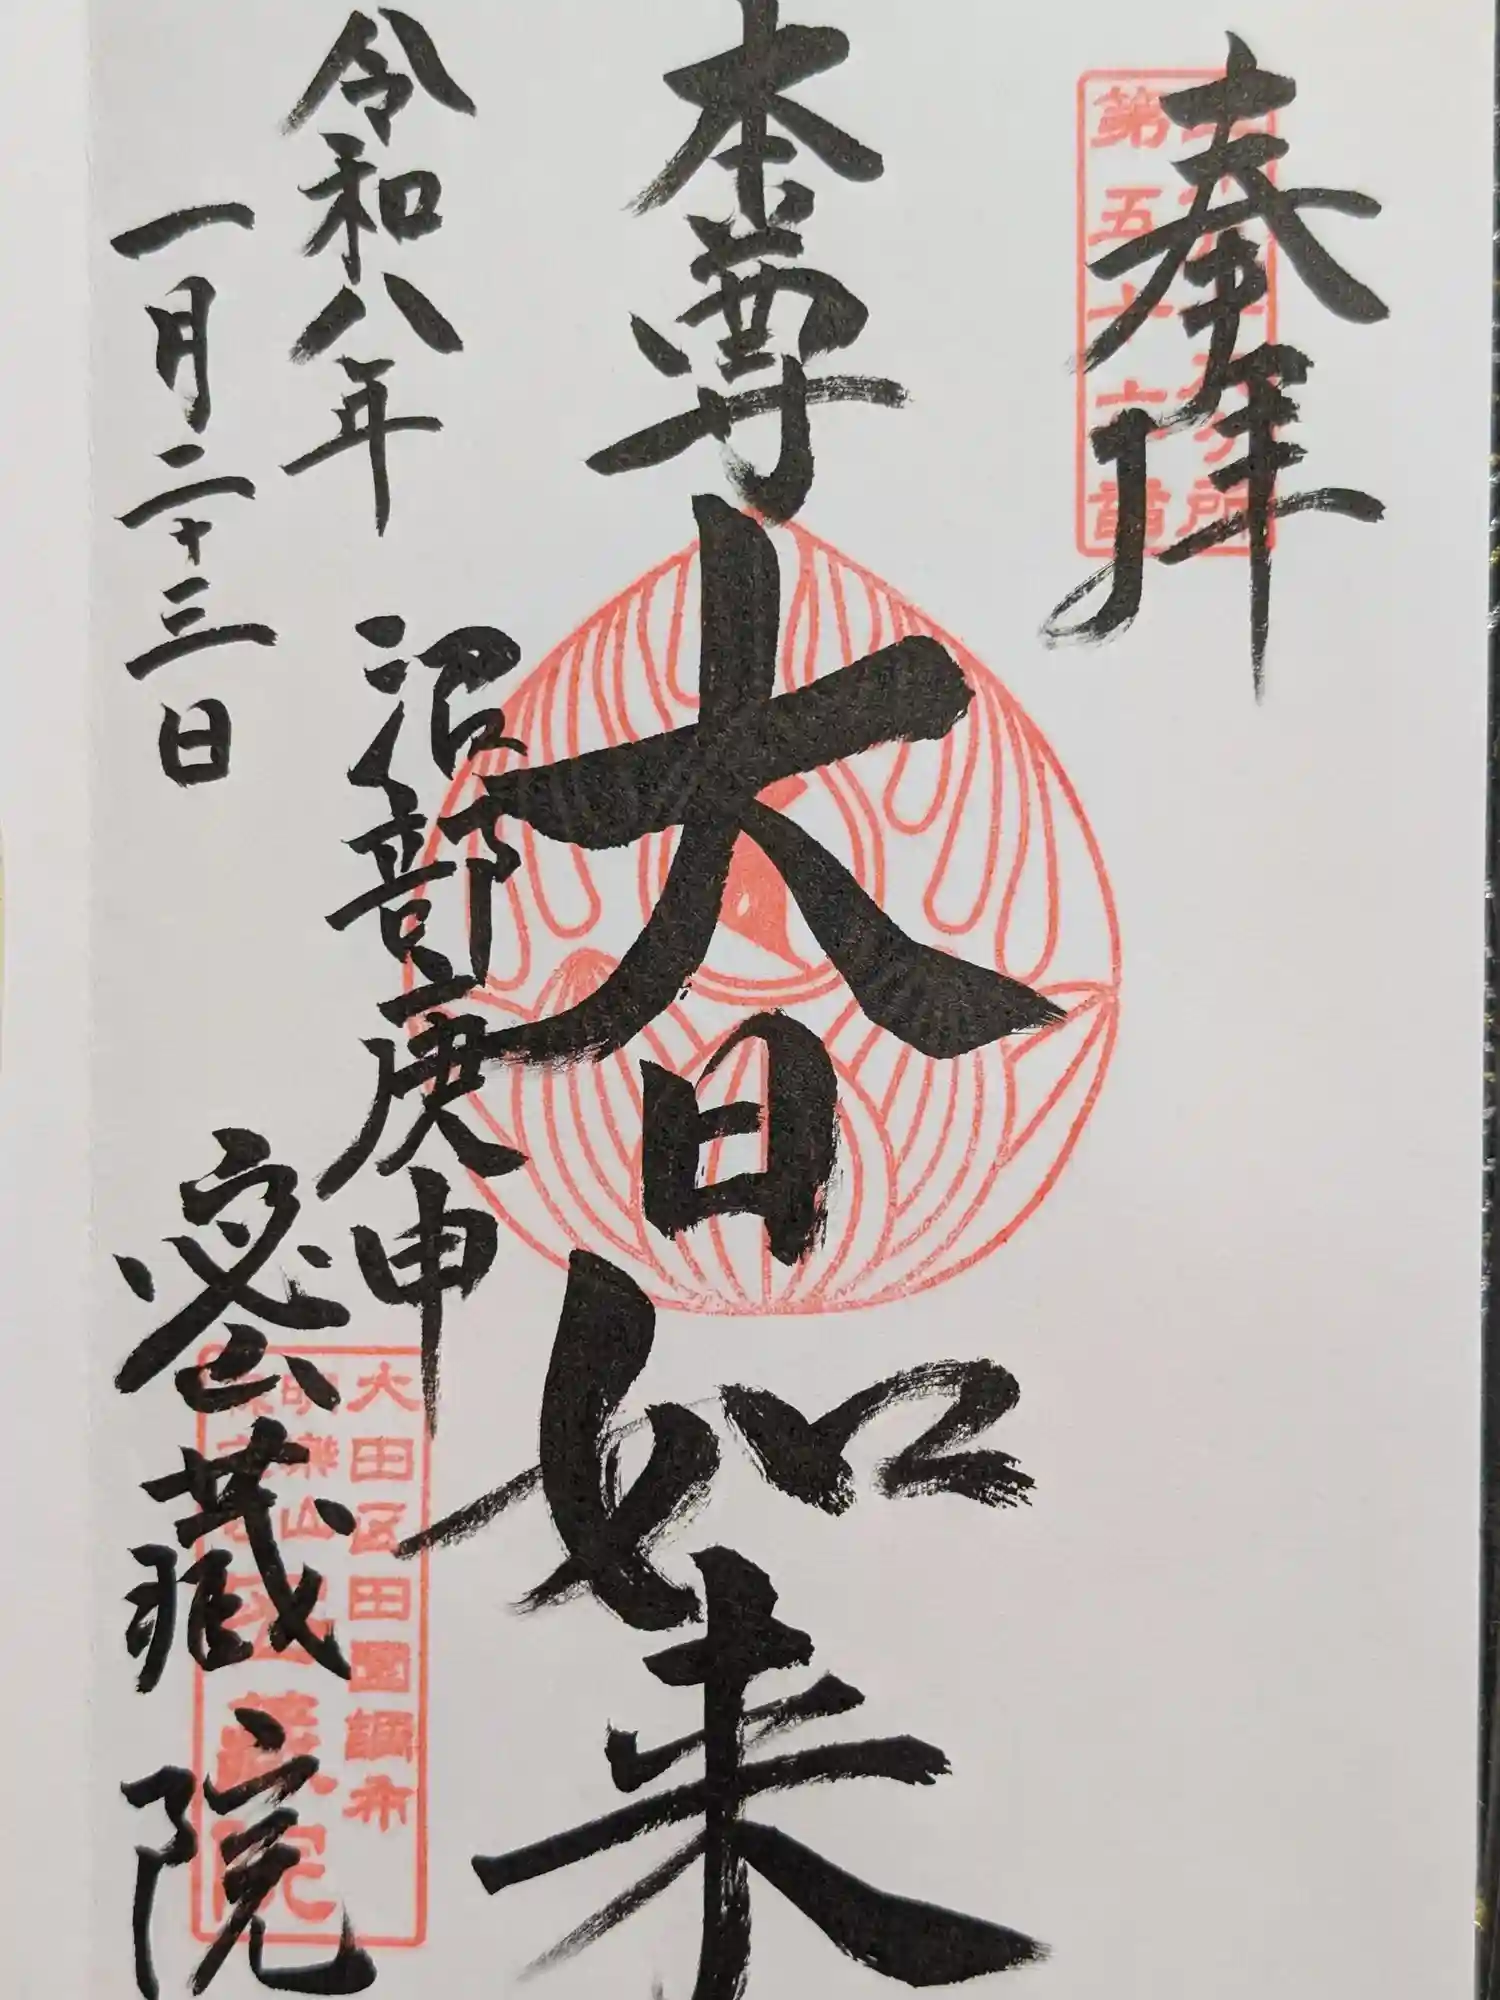 奉拝
第五十六番
本尊
大日如来
沼部庚申
令和八年
一月二十三日
密蔵院
大田区田園調布
明楽山
密蔵院